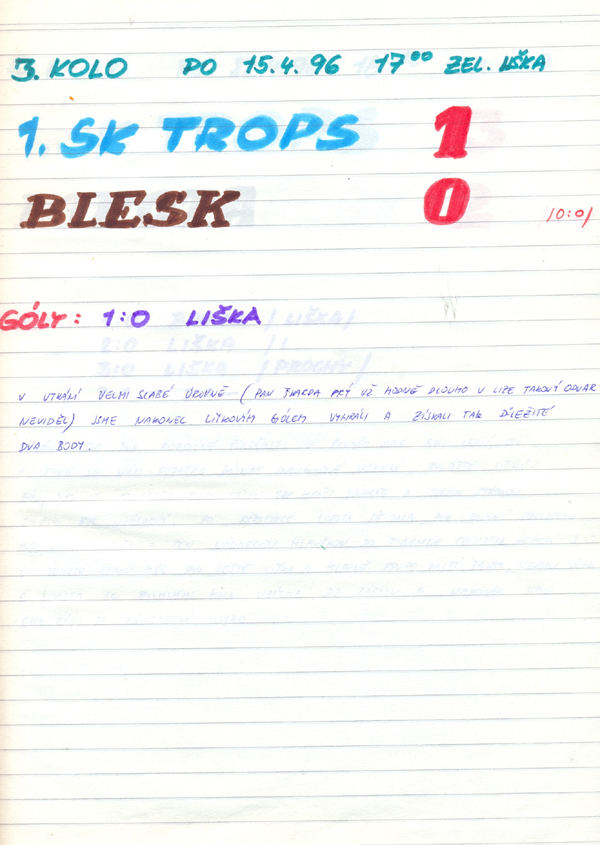 3. KOLO PO 15.4.96 17⁰⁰ ZEL. LIŠKA
1. SK TROPS 1
BLESK 0 /0:0/
GÓLY: 1:0 LIŠKA
V UTKÁNÍ VELMI SLABÉ ÚROVNĚ (PAN ŠKARDA PRÝ UŽ HODNĚ DLOUHO V LIZE TAKOVÝ ODVAR
NEVIDĚL) JSME NAKONEC LIŠKOVÝM GÓLEM VYHRÁLI A ZÍSKALI TAK DŮLEŽITÉ
DVA BODY.